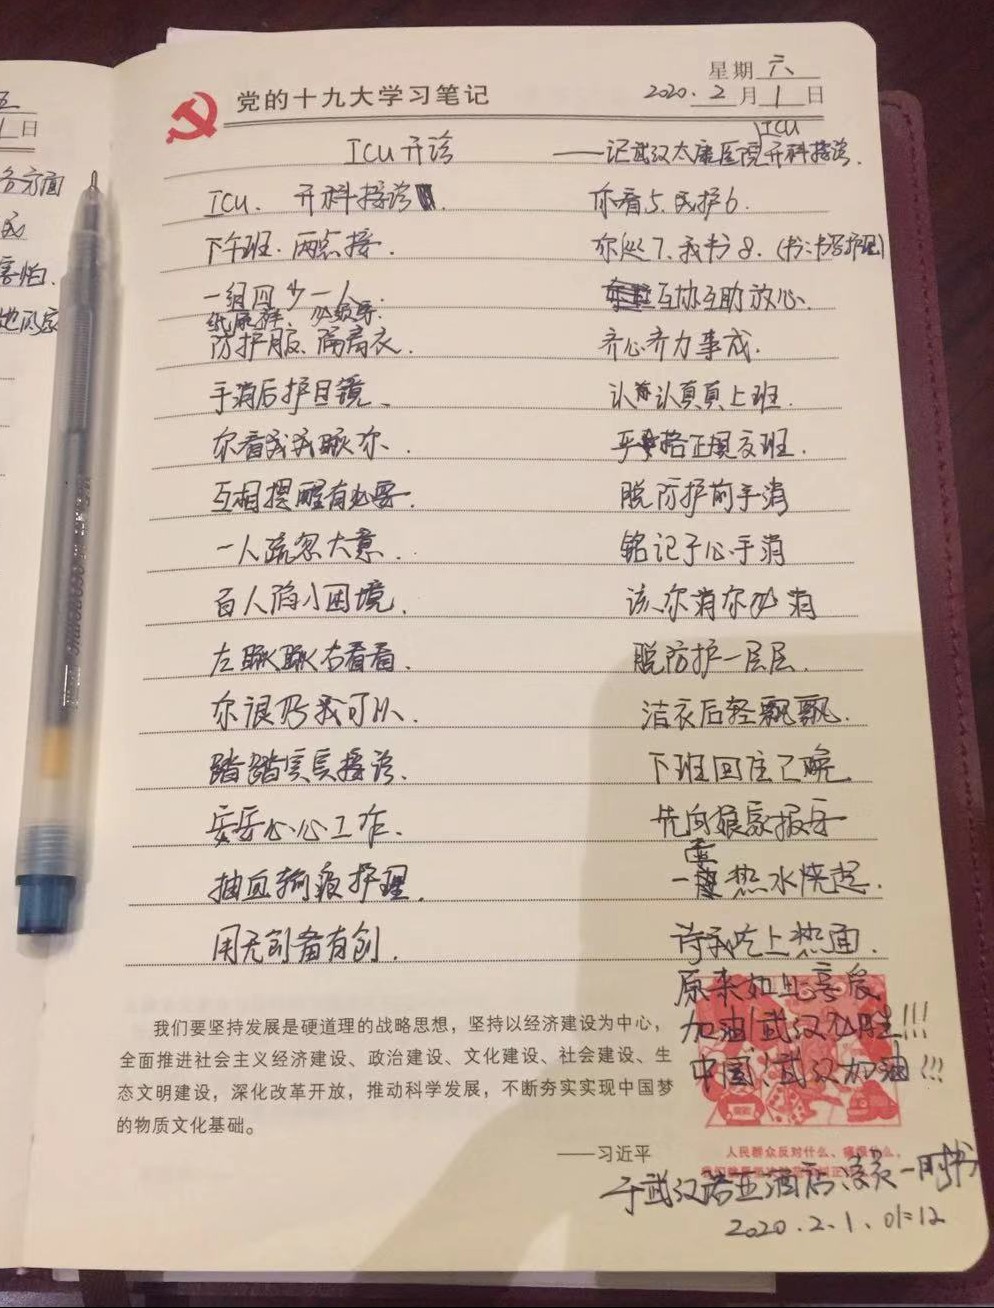 星期 六
党的十九大学习笔记
2020. 2 月 1 日
ICU开诊
——记武汉太康医院ICU开科接诊.
ICU. 开科接诊.
下午班. 两点接.
一组四少一人.
纸尿裤、必须穿.
防护服、隔离衣.
手消后护目镜、
你看我我瞅你.
互相提醒有必要.
一人疏忽大意.
百人陷入困境.
左瞅瞅右看看.
你很好我可以.
踏踏实实接诊.
安安心心工作.
抽血输液护理.
用无创备有创.
你看5.我护6.
你处7.我书8.(书:书写护理)
互协互助放心.
齐心齐力事成.
认认真真上班.
严格正规交班.
脱防护前手消
铭记于心手消
该你消你必消
脱防护一层层.
洁衣后轻飘飘.
下班回住已晚
先向娘家报平
一壶热水烧起.
待我吃上热面.
原来如此享受
加油!武汉必胜!!!
中国、武汉加油!!!
我们要坚持发展是硬道理的战略思想，坚持以经济建设为中心，
全面推进社会主义经济建设、政治建设、文化建设、社会建设、生
态文明建设，深化改革开放，推动科学发展，不断夯实实现中国梦
的物质文化基础。
——习近平
人民群众反对什么、痛恨什么，
于武汉诺亚酒店、凌晨一时书
2020.2.1、01:12
五
日
各方面
害怕.